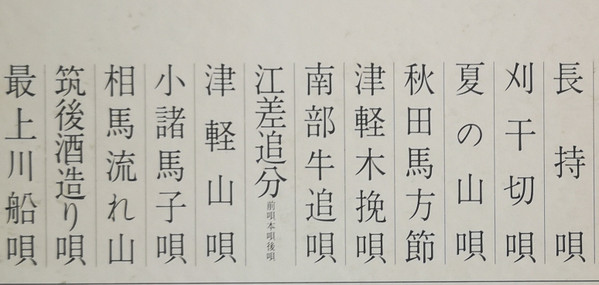 長持唄
刈干切唄
夏の山唄
秋田馬方節
津軽木挽唄
南部牛追唄
江差追分 前唄本唄後唄
津軽山唄
小諸馬子唄
相馬流れ山
筑後酒造り唄
最上川船唄